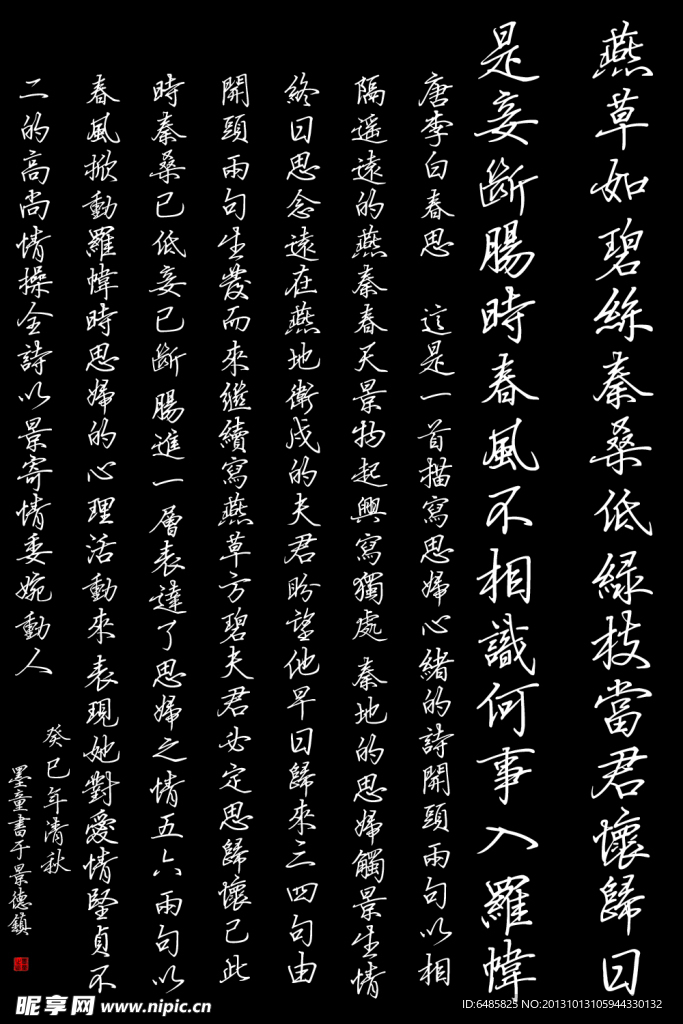 燕草如碧絲秦桑低綠枝當君懷歸日
是妾斷腸時春風不相識何事入羅幃
唐李白春思 這是一首描寫思婦心緒的詩開頭兩句以相
隔遥遠的燕秦春天景物起興寫獨處秦地的思婦觸景生情
終日思念遠在燕地衛戍的夫君盼望他早日歸來三四句由
開頭兩句生發而來繼續寫燕草方碧夫君必定思歸懷已此
時秦桑已低妾已斷腸進一層表達了思婦之情五六兩句以
春風掀動羅幃時思婦的心理活動來表現她對愛情堅貞不
二的高尚情操全詩以景寄情委婉動人
癸巳年清秋
墨童書于景德鎮
昵享网 www.nipic.cn
ID:6485825 NO:20131013105944330132